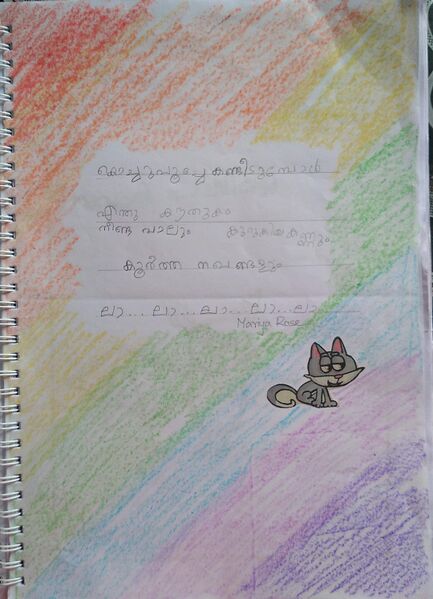 കണ്ടീടുമ്പോൾ
എന്തു കൗതുകം
നീണ്ട വാലും കുറുകിയ കണ്ണും
കൂർത്ത നഖങ്ങളും
ലാ... ലാ... ലാ... ലാ... ലാ
Mariya Rose